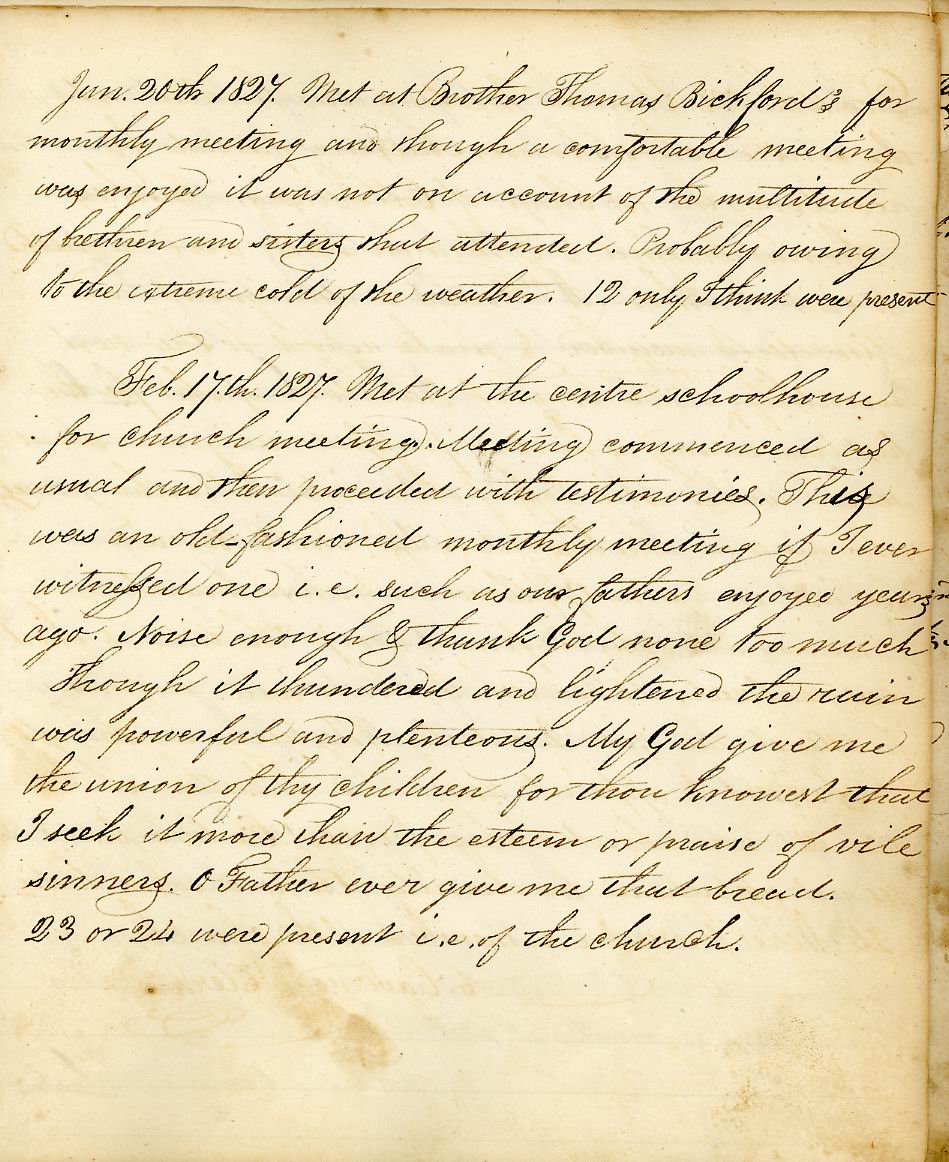 Jan. 20th 1827. Met at Brother Thomas Bickford's for
monthly meeting and though a comfortable meeting
was enjoyed it was not on account of the multitude
of brethren and sisters that attended. Probably owing
to the extreme cold of the weather. 12 only I think were present
Feb. 17.th. 1827. Met at the centre schoolhouse
for church meeting. Meeting commenced as
usual and then proceeded with testimonies. This
was an old-fashioned monthly meeting if I ever
witnessed one i.e. such as our fathers enjoyed years
ago. Noise enough & thank God none too much
Though it thundered and lightened the rain
was powerful and plenteous. My God give me
the union of thy children for thou knowest that
I seek it more than the esteem or praise of vile
sinners. O Father ever give me that bread.
23 or 24 were present i.e. of the church.